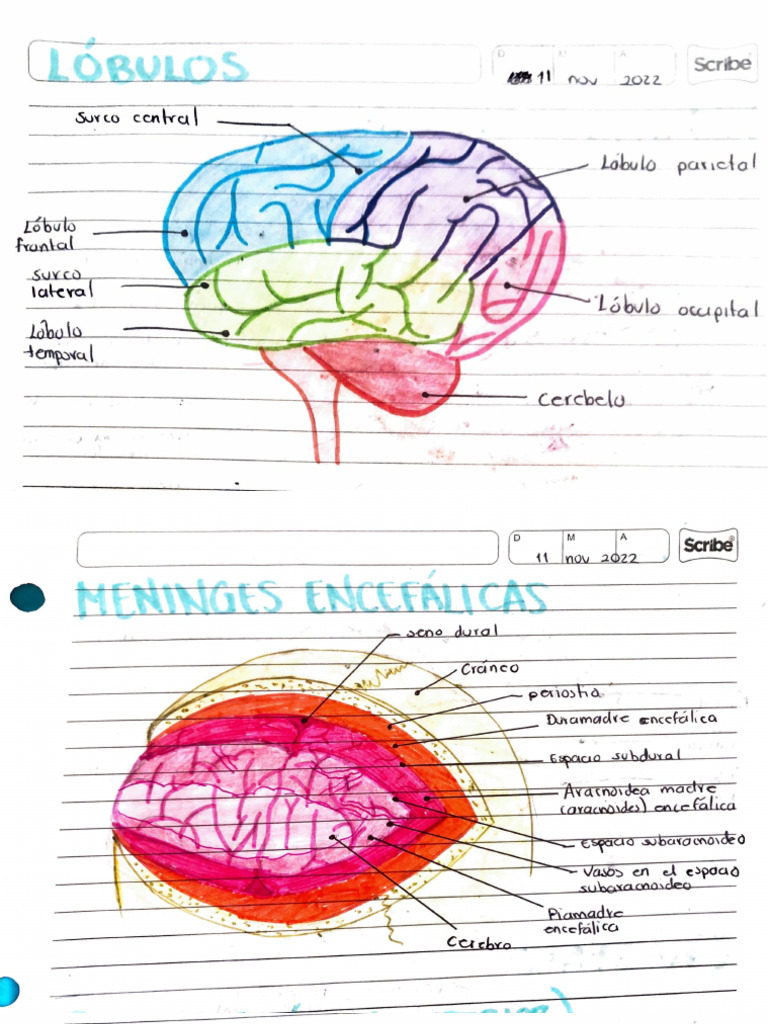 LÓBULOS
D M A
11 nov 2022
Scribe
surco central
Lóbulo parietal
Lóbulo
frontal
surco
lateral
Lóbulo occipital
Lóbulo
temporal
cerebelo
D M A
11 nov 2022
Scribe
MENINGES ENCEFÁLICAS
seno dural
Cráneo
periostio
Duramadre encefálica
Espacio subdural
Aracnoidea madre
(aracnoides) encefálica
Espacio subaracnoideo
Vasos en el espacio
subaracnoideo
Piamadre
encefálica
Cerebro